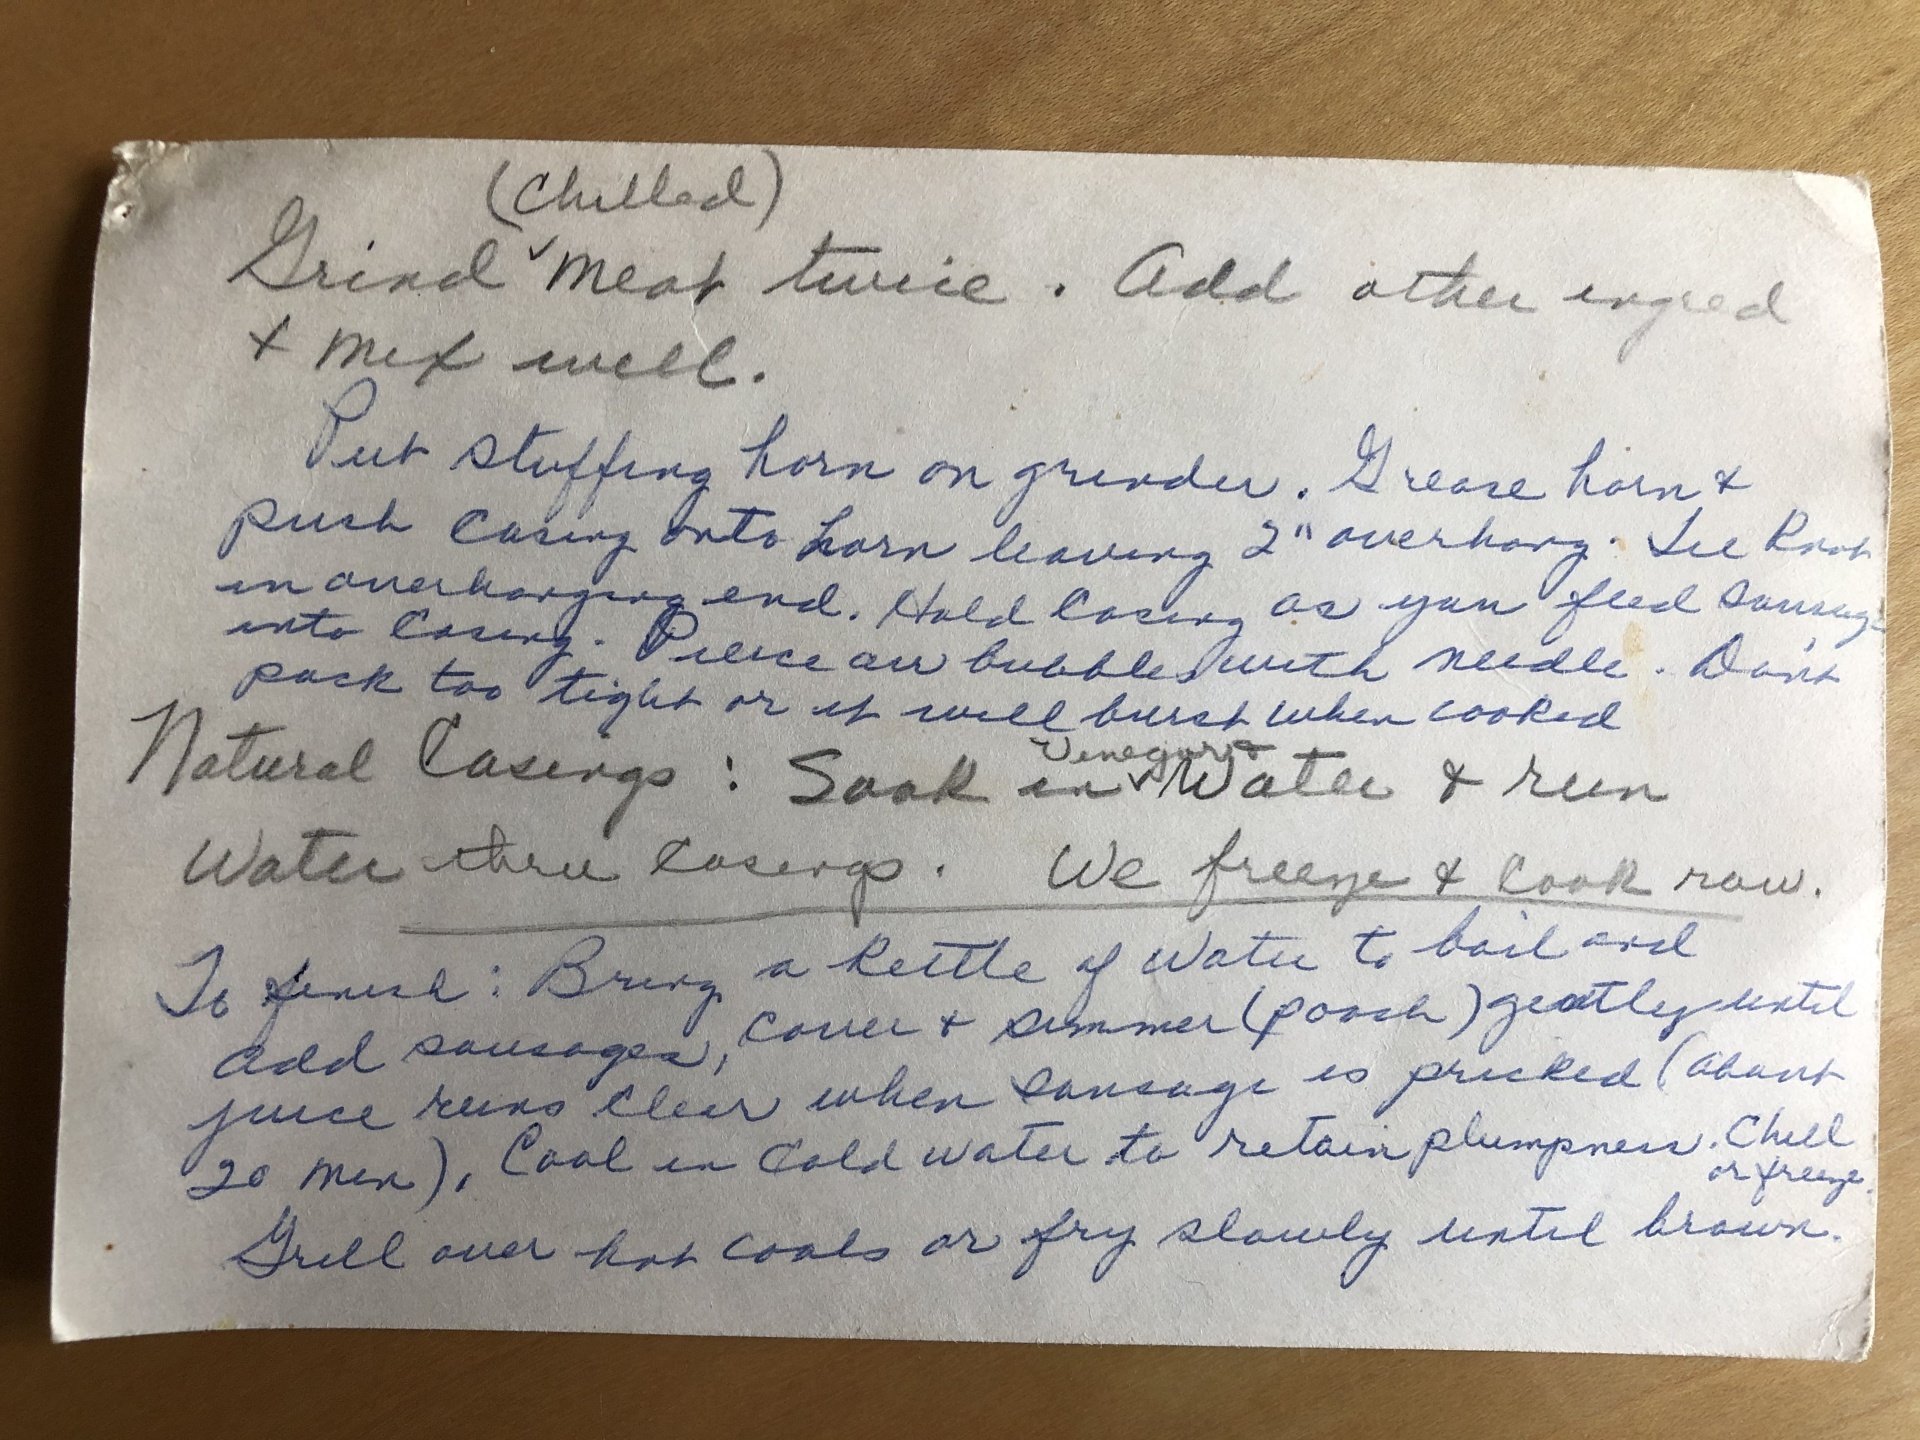 (Chilled)
Grind ✓ Meat twice. Add other ingred
+ mix well.
Put stuffing horn on grinder. Grease horn +
push casing onto horn leaving 2" overhang. Tie Knot
in overhanging end. Hold Casing as you feed sausage
into casing. Pierce air bubbles with needle. Don't
pack too tight or it will burst when cooked
Vinegar +
Natural Casings: Soak in ✓ Water + run
Water thru Casings. We freeze + cook raw.
To finish: Bring a Kettle of Water to boil and
add sausages, cover + simmer (poach) gently until
juice runs clear when sausage is pricked (about
20 min), Cool in Cold water to retain plumpness. Chill
or freeze.
Grill over hot coals or fry slowly until brown.